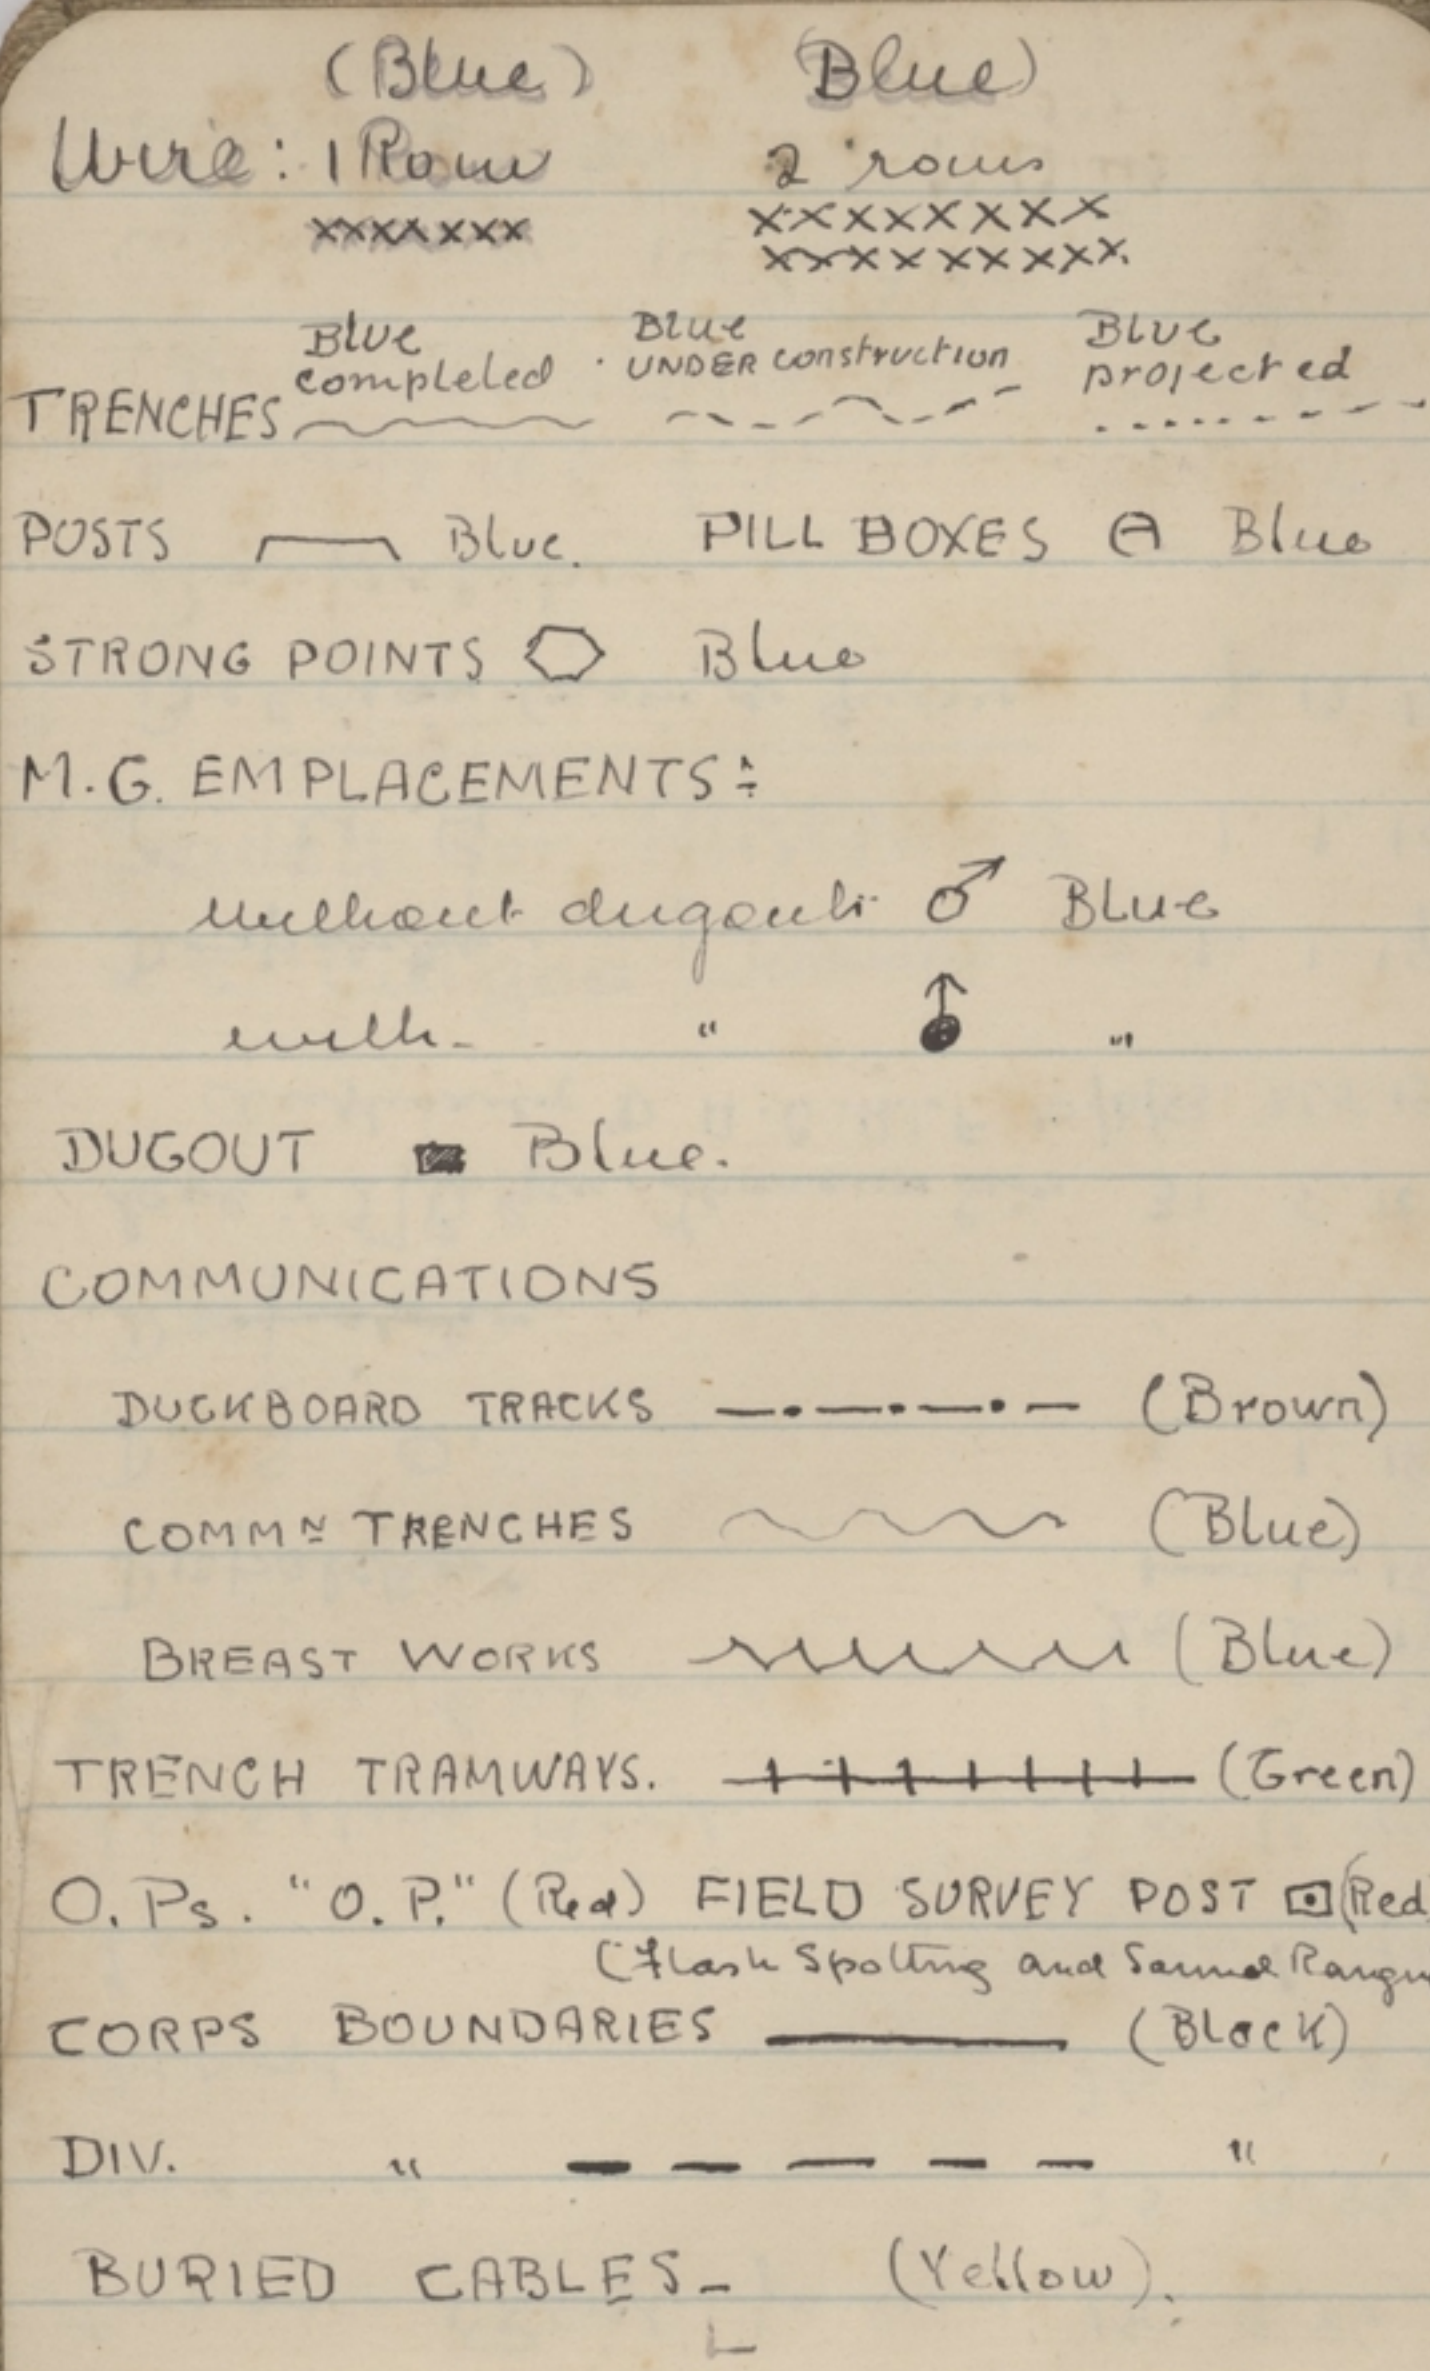 (Blue) (Blue)
Wire: 1 Row 2 rows
xxxxxxx xxxxxxxx
xxxxxxxxx
Blue Blue Blue
completed UNDER construction projected
TRENCHES
POSTS Blue. PILL BOXES Blue
STRONG POINTS Blue
M.G. EMPLACEMENTS:
without dugouts Blue
with - " "
DUGOUT Blue.
COMMUNICATIONS
DUCKBOARD TRACKS (Brown)
COMMN TRENCHES (Blue)
BREAST WORKS (Blue)
TRENCH TRAMWAYS. (Green)
O.Ps. "O.P." (Red) FIELD SURVEY POST (Red
(Flash Spotting and Sound Rangin
CORPS BOUNDARIES (Black)
DIV. " "
BURIED CABLES - (Yellow).